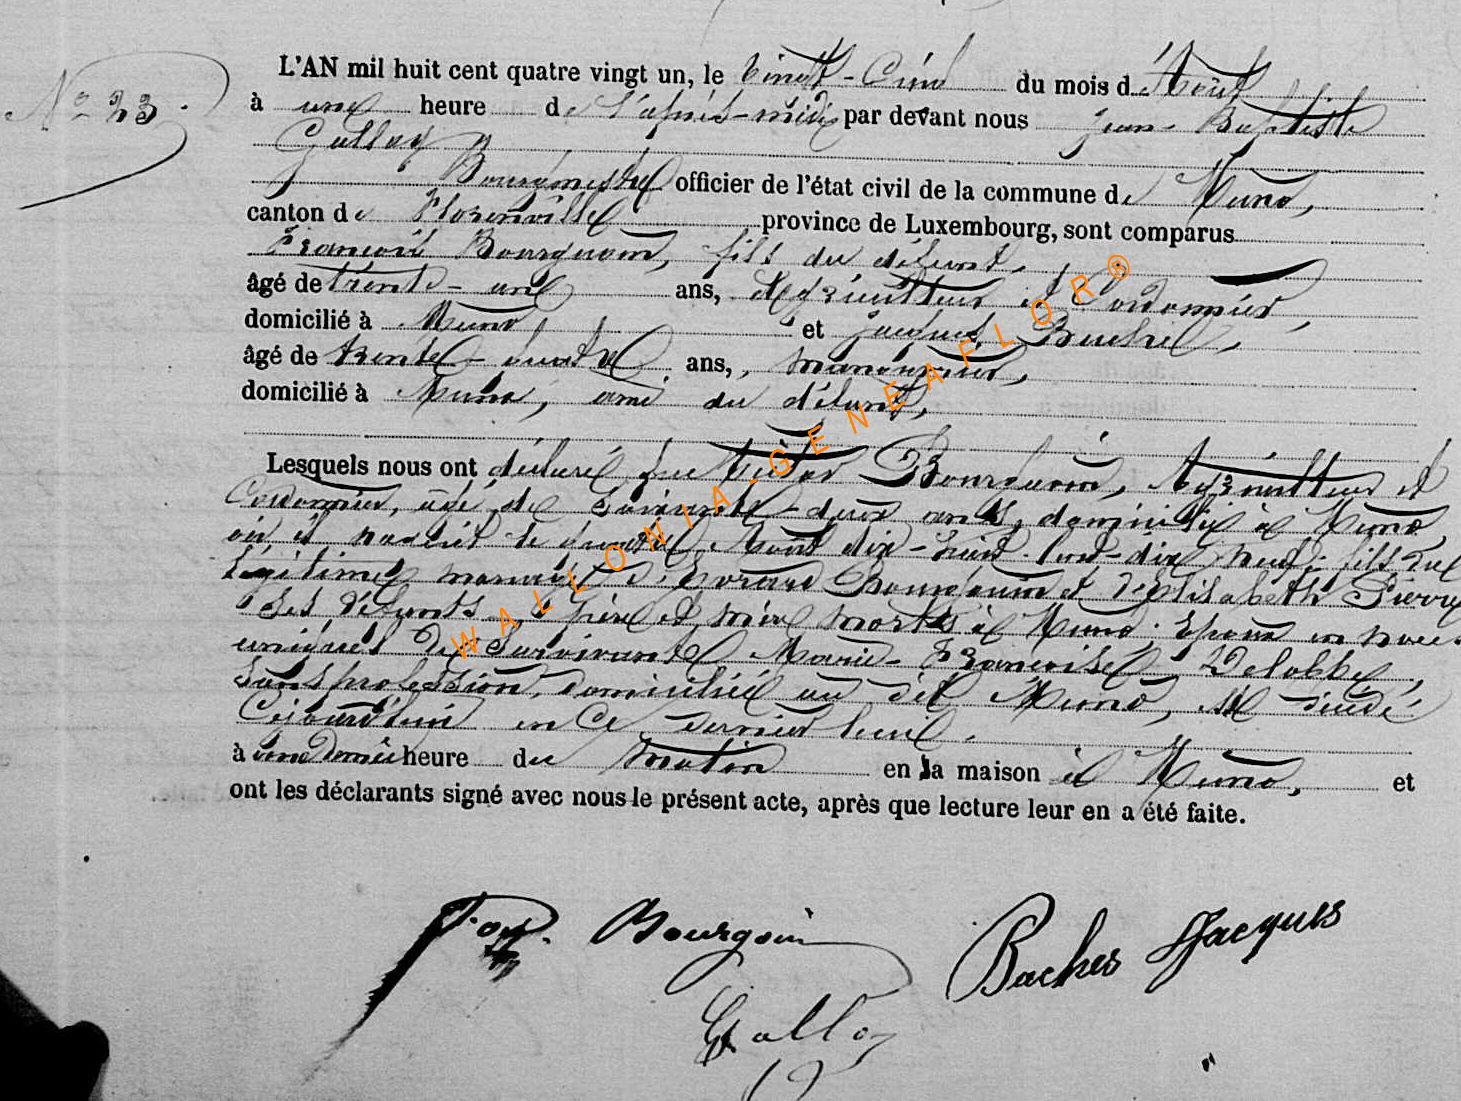 N° 23.
L'AN mil huit cent quatre vingt un, le vingt-cinq du mois d'Août
à une heure de l'après-midi par devant nous Jean-Baptiste
Galloy
Bourgmestre officier de l'état civil de la commune de Muno,
canton de Florenville province de Luxembourg, sont comparus
François Bourguoin, fils du défunt,
âgé de trente-un ans, Agriculteur et Cordonnier,
domicilié à Muno et Jacques
âgé de trente-quatre ans, manouvrier,
domicilié à Muno, ami du défunt,
Lesquels nous ont déclaré que Bourguoin, Agriculteur et
Cordonnier, âgé de soixante-deux ans, domicilié à Muno
où il naquit le quatre Août dix-huit-cent-dix neuf, fils du
légitime mariage d' Bourguoin et d'Elisabeth Pierre
ses défunts père et mère morts à Muno; Epoux en noces
uniques de survivante Marie-Françoise Delobbe,
sans profession, domiciliée au dit Muno, est décédé
cejourd'hui en ce dernier lieu,
à une demie heure du matin en la maison à Muno, et
ont les déclarants signé avec nous le présent acte, après que lecture leur en a été faite.
Bourgoin Baches Jacques
Galloy
WALLONIA-GENEAFLOR®